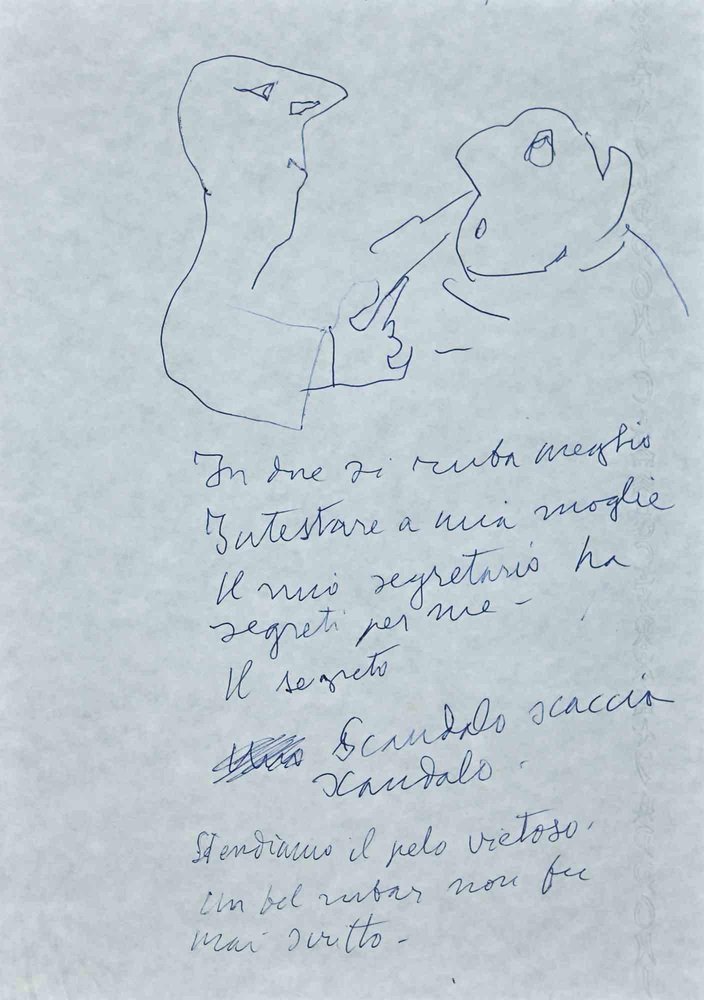 In due si ruba meglio
Intestare a mia moglie
Il mio segretario ha
segreti per me -
Il segreto
Scandalo scaccia
scandalo.
Stendiamo il pelo vietoso.
un bel rubar non fu
mai scritto -